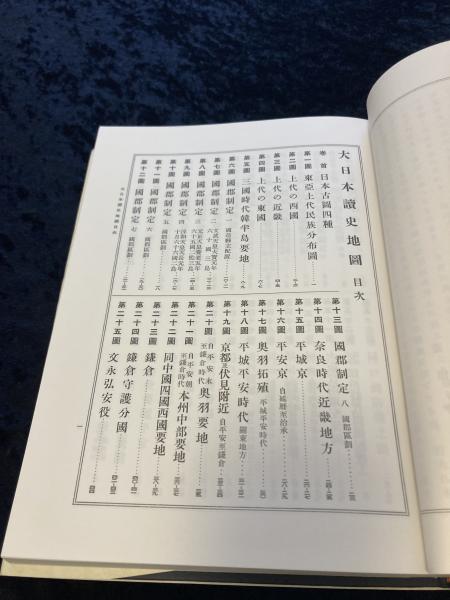 大日本讀史地圖 目次
卷首 日本古圖四種
第一圖 東亞上代民族分布圖 一
第二圖 上代の西國
第三圖 上代の近畿
第四圖 上代の東國
第五圖 三國時代韓半島要地
第六圖 國郡制定 一
第七圖 國郡制定 二
第八圖 國郡制定 三
第九圖 國郡制定 四
第十圖 國郡制定 五 國郡區劃
第十一圖 國郡制定 六 國郡區劃
第十二圖 國郡制定 七 國郡區劃
第十三圖 國郡制定 八 國郡區劃
第十四圖 奈良時代近畿地方
第十五圖 平城京
第十六圖 平安京 自延曆至治承
第十七圖 奧羽拓殖 平城平安時代
第十八圖 平城平安時代 關東地方
第十九圖 京都及伏見附近 自平安至鎌倉
第二十圖 自平安末至鎌倉時代 奧羽要地
第二十一圖 自平安朝至鎌倉時代 本州中部要地
第二十二圖 同中國四國西國要地
第二十三圖 鎌倉
第二十四圖 鎌倉守護分國
第二十五圖 文永弘安役
一